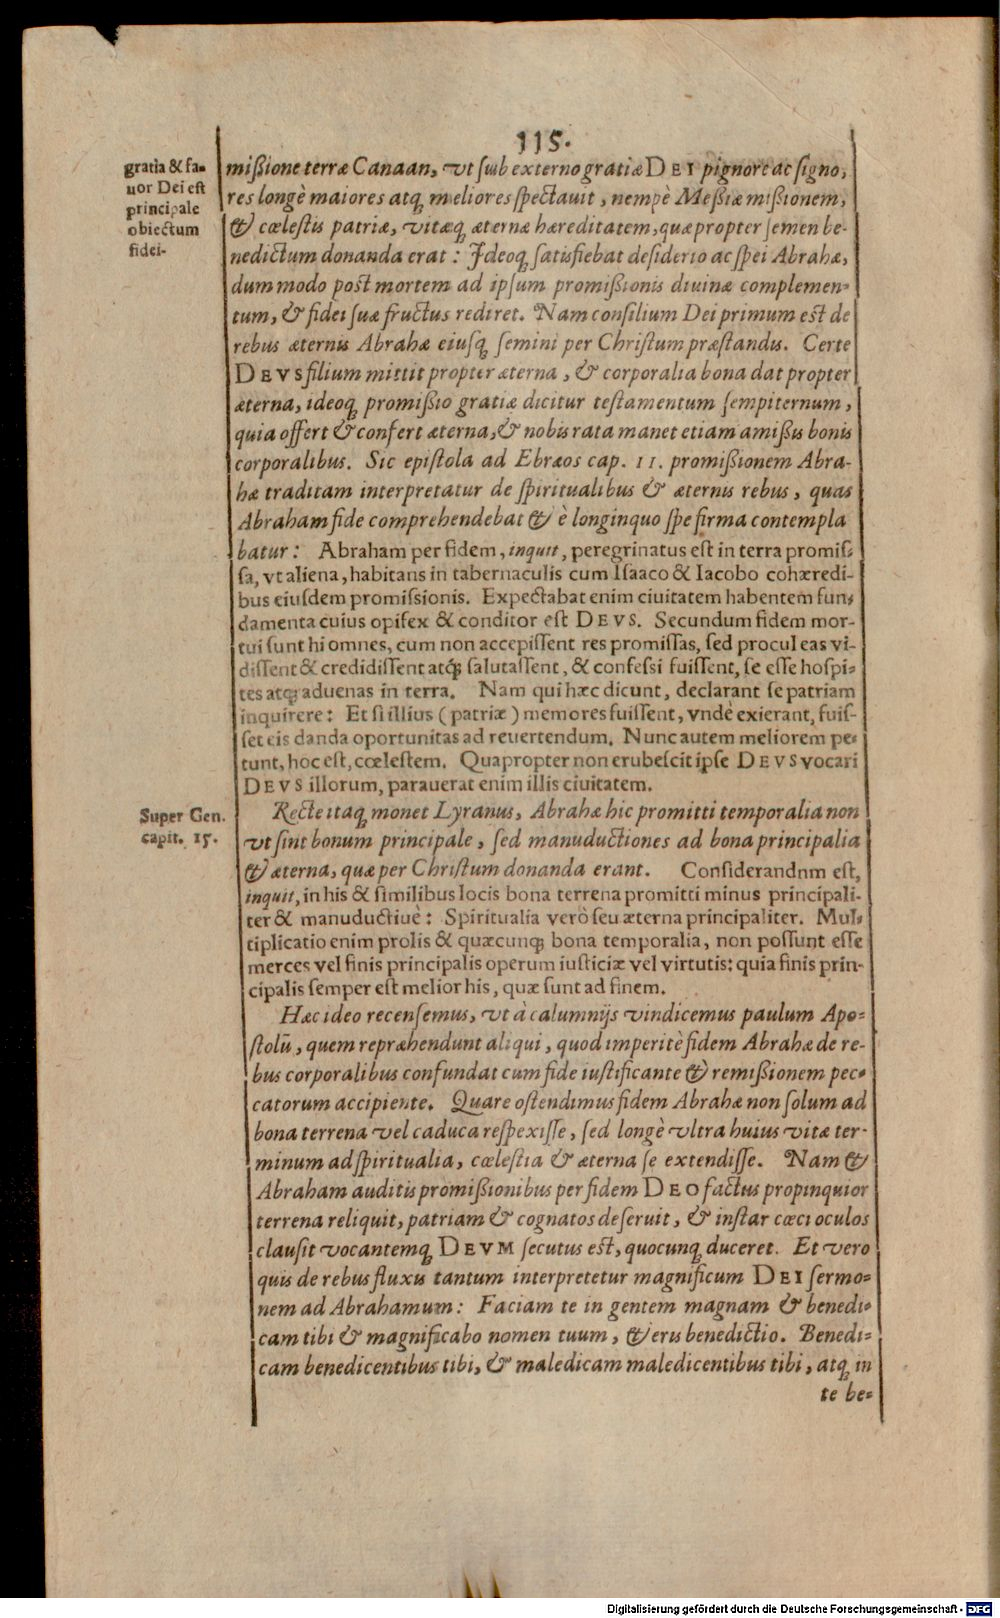 115.
gratia & fa-
uor Dei est
principale
obiectum
fidei.
mißione terræ Canaan, vt sub externo gratiæ DEI pignore ac signo,
res longè maiores atq; meliores spectauit, nempè Meßiæ mißionem,
& cœlestis patriæ, vitæq; æternæ hæreditatem, quæ propter semen be-
nedictum donanda erat: Ideoq; satisfiebat desiderio ac spei Abrahæ,
dummodo post mortem ad ipsum promißionis diuinæ complemen-
tum, & fidei suæ fructus rediret. Nam consilium Dei primum est de
rebus æternis Abrahæ eiusq; semini per Christum præstandis. Certe
DEVS filium mittit propter æterna, & corporalia bona dat propter
æterna, ideoq; promißio gratiæ dicitur testamentum sempiternum,
quia offert & confert æterna, & nobis rata manet etiam amißis bonis
corporalibus. Sic epistola ad Ebræos cap. 11. promißionem Abra-
hæ traditam interpretatur de spiritualibus & æternis rebus, quas
Abraham fide comprehendebat & è longinquo spe firma contempla
batur: Abraham per fidem, inquit, peregrinatus est in terra promis-
sa, vt aliena, habitans in tabernaculis cum Isaaco & Iacobo cohæredi-
bus eiusdem promissionis. Expectabat enim ciuitatem habentem fun-
damenta cuius opifex & conditor est DEVS. Secundum fidem mor-
tui sunt hi omnes, cum non accepissent res promissas, sed procul eas vi-
dissent & credidissent atq; salutassent, & confessi fuissent, se esse hospi-
tes atq; aduenas in terra. Nam qui hæc dicunt, declarant se patriam
inquirere: Et si illius (patriæ) memores fuissent, vndè exierant, fuis-
set eis danda oportunitas ad reuertendum. Nunc autem meliorem pe-
tunt, hoc est, cœlestem. Quapropter non erubescit ipse DEVS vocari
DEVS illorum, parauerat enim illis ciuitatem.
Super Gen.
capit. 15.
Recte itaq; monet Lyranus, Abrahæ hic promitti temporalia non
vt sint bonum principale, sed manuductiones ad bona principalia
& æterna, quæ per Christum donanda erant. Considerandnm est,
inquit, in his & similibus locis bona terrena promitti minus principali-
ter & manuductiuè: Spiritualia verò seu æterna principaliter. Mul-
tiplicatio enim prolis & quæcunq; bona temporalia, non possunt esse
merces vel finis principalis operum iusticiæ vel virtutis: quia finis prin-
cipalis semper est melior his, quæ sunt ad finem.
Hæc ideo recensemus, vt à calumnijs vindicemus paulum Apo-
stolū, quem repræhendunt aliqui, quod imperitè fidem Abrahæ de re-
bus corporalibus confundat cum fide iustificante & remißionem pec-
catorum accipiente. Quare ostendimus fidem Abrahæ non solum ad
bona terrena vel caduca respexisse, sed longè vltra huius vitæ ter-
minum ad spiritualia, cœlestia & æterna se extendisse. Nam &
Abraham auditis promißionibus per fidem DEO factus propinquior
terrena reliquit, patriam & cognatos deseruit, & instar cæci oculos
clausit vocantemq; DEVM secutus est, quocunq; duceret. Et vero
quis de rebus fluxis tantum interpretetur magnificum DEI sermo-
nem ad Abrahamum: Faciam te in gentem magnam & benedi-
cam tibi & magnificabo nomen tuum, & eris benedictio. Benedi-
cam benedicentibus tibi, & maledicam maledicentibus tibi, atq; in
te be-
Digitalisierung gefördert durch die Deutsche Forschungsgemeinschaft - DFG